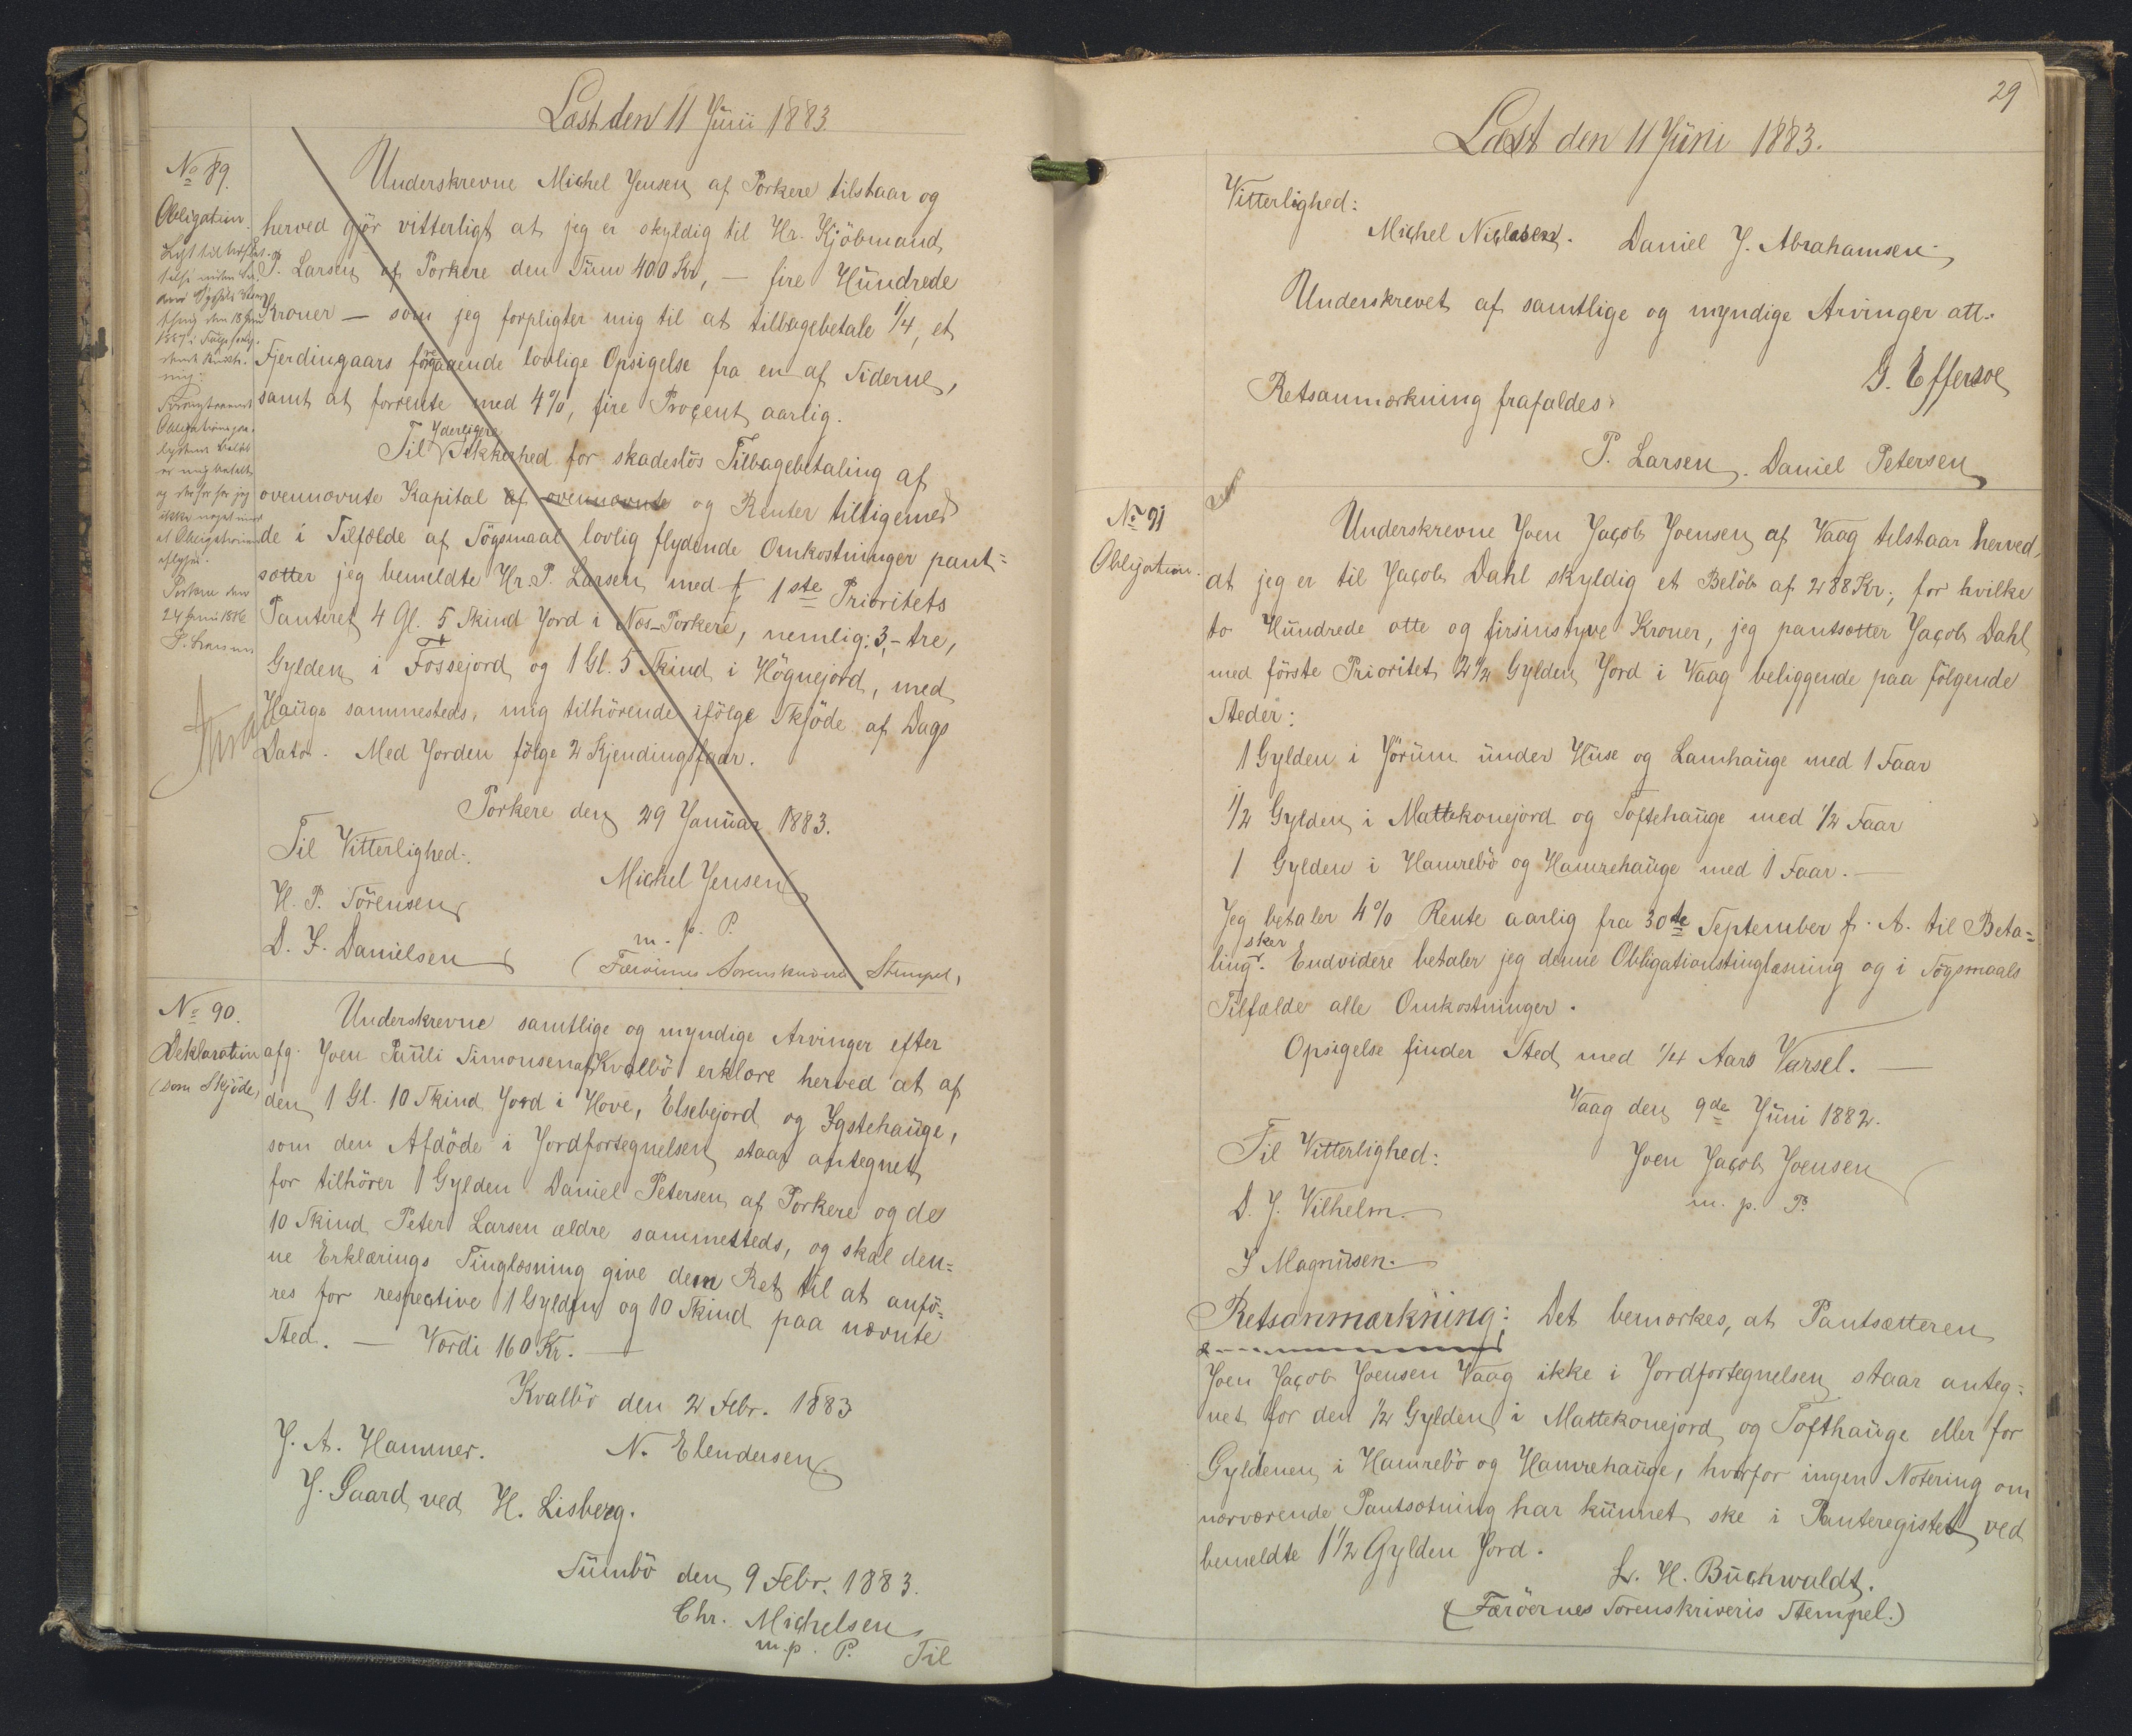 Læst den 11 Juni 1883.
No 89.
Obligation.
Underskrevne Michel Jensen af Porkere tilstaar og
herved gjör vitterligt at jeg er skyldig til Hr. Kjöbmand
P. Larsen af Porkere den Sum 400 Kr, — fire Hundrede
Kroner — som jeg forpligter mig til at tilbagebetale 1/4, et
Fjerdingaars foregaaende lovlige Opsigelse fra en af Siderne,
samt at forrente med 4%, fire Procent aarlig.
Til Yderligere Sikkerhed for skadeslös Tilbagebetaling af
ovennævnte Kapital af ovennævnte og Renter tilligemed
de i Tilfælde af Sögsmaal lovlig flydende Omkostninger pant=
sætter jeg bemeldte Hr. P. Larsen med 1ste Prioritets
Panteret 4 Gl. 5 Skind Jord i Næs-Porkere, nemlig: 3,- tre,
Gylden i Fossejord og 1 Gl. 5 Skind i Högnejord, med
Hauge sammesteds, mig tilhörende ifölge Skjöde af Dags
Dato. Med Jorden fölge 2 Kjendingsfaar.
Porkere den 29 Januar 1883.
Til Vitterlighed:
Michel Jensen
H. P. Sörensen
m. p. P.
D. J. Danielsen
(Færöernes Sorenskriveris Stempel)
Porkere den
24 Juni 1886
P. Larsen
No 90.
Deklaration
(som Skjöde)
Underskrevne samtlige og myndige Arvinger efter
afg. Joen Pauli Simonsen af Kvalbö erklære herved at af
den 1 Gl. 10 Skind Jord i Hove, Elsebejord og Ygstehauge,
som den Afdöde i Jordfortegnelsen staar antegnet
for tilhörer 1 Gylden Daniel Petersen af Porkere og de
10 Skind Peter Larsen ældre sammesteds, og skal den=
ne Erklærings Tinglæsning give dem Ret til at anfö=
res for respective 1 Gylden og 10 Skind paa nævnte
Sted. — Værdi 160 Kr. —
Kvalbö den 2 Febr. 1883
J. A. Hammer. N. Elendersen
J. Gaard ved H. Lisberg.
Sumbö den 9 Febr. 1883.
Chr. Michelsen
m.p. P.
Til
29
Læst den 11 Juni 1883.
Vitterlighed:
Michel Niclasen. Daniel J. Abrahamsen
Underskrevet af samtlige og myndige Arvinger att.
G. Effersöe
Retsanmærkning frafaldes:
P. Larsen. Daniel Petersen
No 91
Obligation.
Underskrevne Joen Jacob Joensen af Vaag tilstaar herved,
at jeg er til Jacob Dahl skyldig et Belöb af 288 Kr.; for hvilke
to Hundrede otte og firsinstyve Kroner, jeg pantsætter Jacob Dahl
med förste Prioritet 2 1/2 Gylden Jord i Vaag beliggende paa fölgende
Steder:
1 Gylden i Jörum under Huse og Lamhauge med 1 Faar
1/2 Gylden i Mattekonejord og Toftehauge med 1/2 Faar
1 Gylden i Hamrebö og Hamrehauge med 1 Faar. —
Jeg betaler 4% Rente aarlig fra 30te September f. A. til Beta=
ling sker. Endvidere betaler jeg denne Obligationstinglæsning og i Sögsmaals
Tilfælde alle Omkostninger.
Opsigelse finder Sted med 1/4 Aars Varsel. —
Vaag den 9de Juni 1882.
Til Vitterlighed:
Joen Jacob Joensen
D. J. Vilhelm.
m. p. P.
J Magnusen.
Retsanmærkning: Det bemærkes, at Pantsætteren
Joen Jacob Joensen Vaag ikke i Jordfortegnelsen staar anteg=
net for den 1/2 Gylden i Mattekonejord og Tofthauge eller for
Gyldenen i Hamrebö og Hamrehauge, hvorfor ingen Notering om
nærværende Pantsætning har kunnet ske i Panteregistet ved
bemeldte 1 1/2 Gylden Jord.
L. H. Buchwaldt.
(Færöernes Sorenskriveris Stempel.)